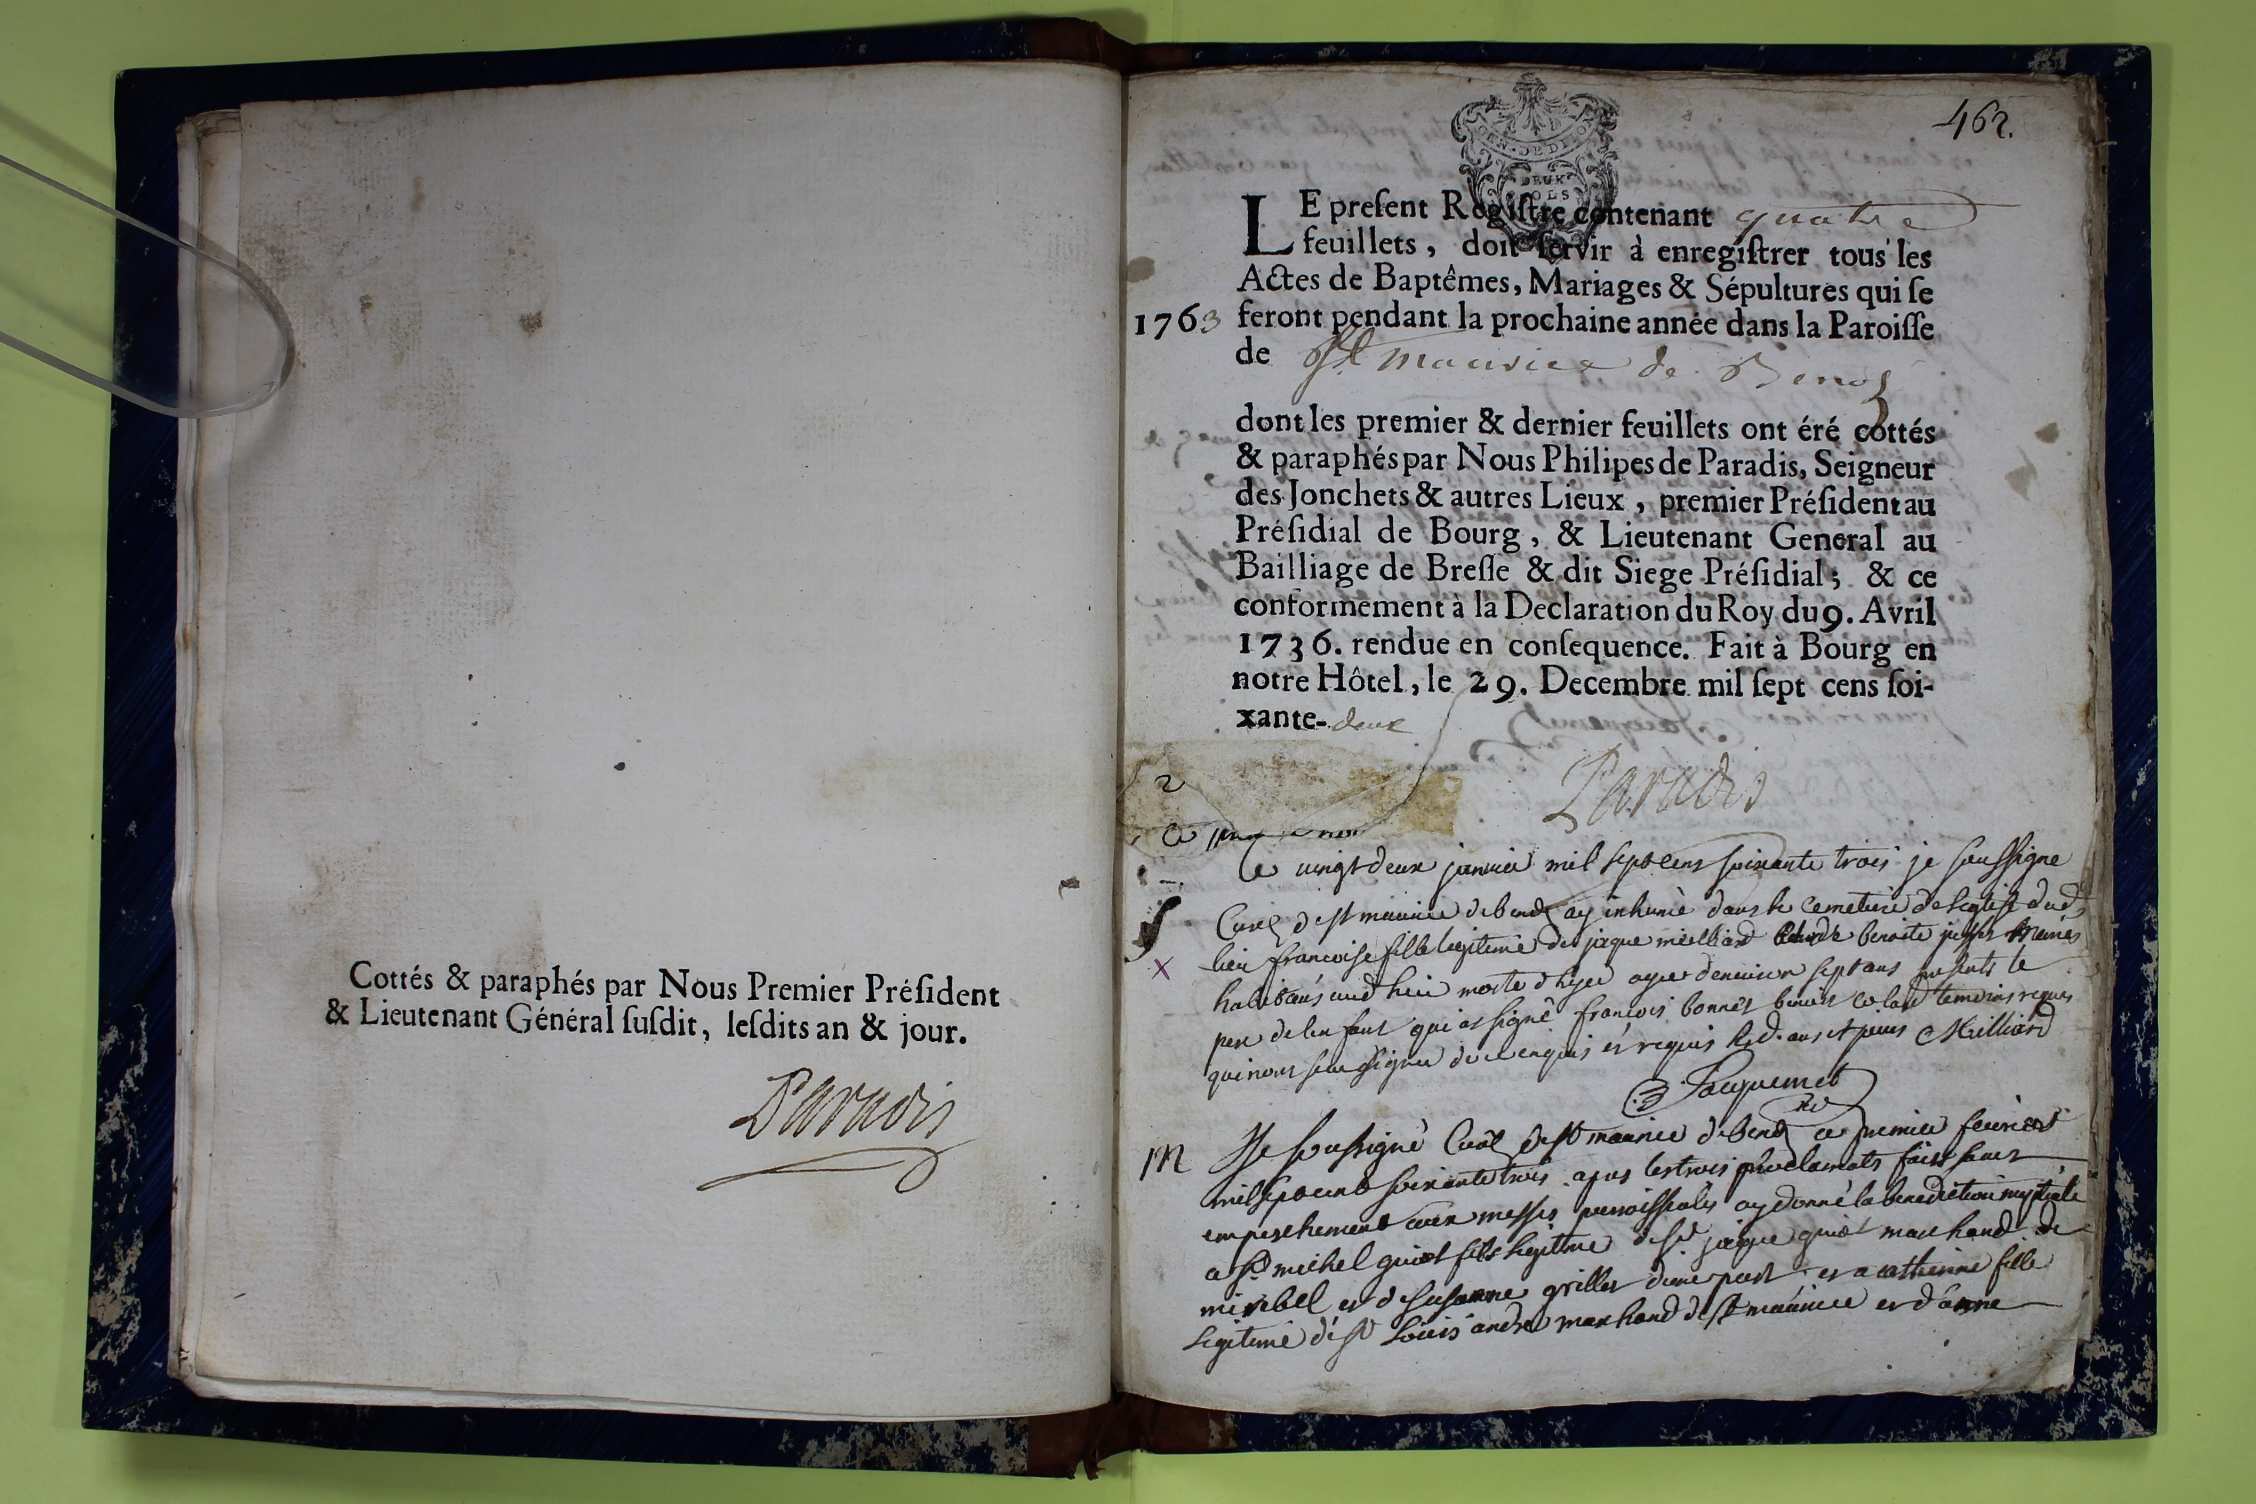 Cottés & paraphés par Nous Premier Président
& Lieutenant Général ſuſdit, leſdits an & jour.
Paradis
462.
GEN. DE DIJON
DEUX
SOLS
LE preſent Regiſtre contenant quatre
feuillets, doit ſervir à enregiſtrer tous les
Actes de Baptêmes, Mariages & Sépultures qui ſe
1763 feront pendant la prochaine année dans la Paroiſſe
de St maurice de Benoz
dont les premier & dernier feuillets ont éré cottés
& paraphés par Nous Philipes de Paradis, Seigneur
des Jonchets & autres Lieux, premier Préſident au
Préſidial de Bourg, & Lieutenant General au
Bailliage de Breſſe & dit Siege Préſidial; & ce
conformement à la Declaration du Roy du 9. Avril
1736. rendue en conſequence. Fait à Bourg en
notre Hôtel, le 29. Decembre mil ſept cens ſoi-
xante-deux
Paradis
2
Ce vingt deux janvier mil sept cens soixante trois je soussigne
S Curé de st maurice de ay inhumé dans le cemetiere de leglise dud
X lieu francoise fille legitime de jaque milliard benoite
habitans aud lieu morte dhyer agee denviron sept ans presents le
pere de lenfant qui a signé françois bonnet benoit temoins requis
qui nont sceu signer de ce enquis et requis Milliard
Jacquemet
M Je soussigné Curé de st maurice de ce premier fevrier
mil sept cent soixante trois apres les trois proclamats faits sans
empeschement aux messes parroissiales ay donné la benediction nuptiale
a sr michel fils legitime de sr jaque marchand de
miribel et de susanne grillet dune part et a catherine fille
legitime de sr Louis andré marchand de st maurice et danne